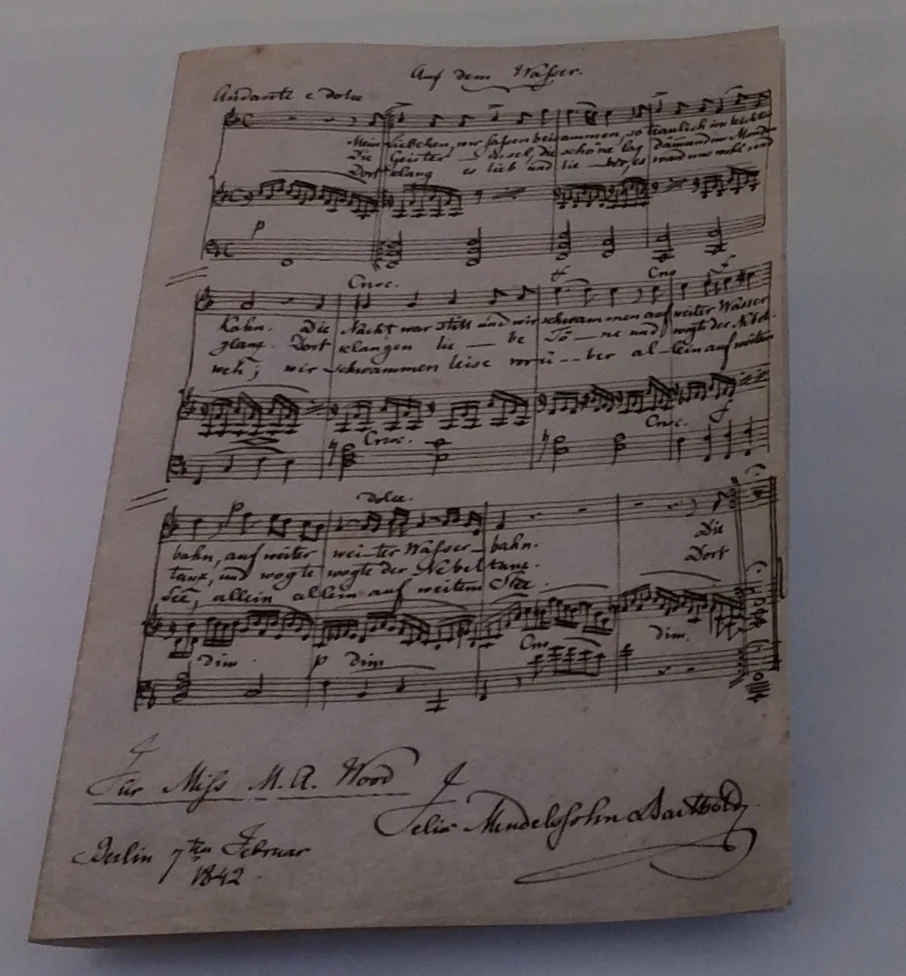 Auf dem Wasser.
Andante e dolce
Mein Liebchen, wir saßen beisammen, so traulich im leichten
Die Geister - insel, die schöne lag dämmernd im Monden
Dort klang es lieb und lie - ber, es ward uns wohl und
p
Cresc. sf Cresc. sf
Kahn. Die Nacht war still und wir schwammen auf weiter Wasser
glanz. Dort klangen lie - be Tö - ne und wogte der Nebel-
weh; wir schwammen leise vorü - ber al - lein auf weitem
Cresc. Cresc. f
p dolce.
bahn, auf weiter wei - ter Wasser - bahn. Die
tanz, und wogte wogte der Nebeltanz. Dort
See, allein allein auf weitem See.
dim. p dim Cresc dim.
Für Miss M. A. Wood
Felix Mendelssohn Bartholdy.
Berlin 7ten Februar
1842.